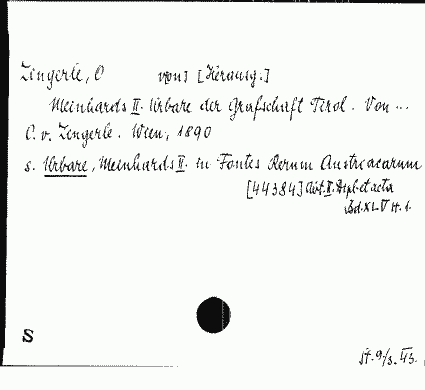 Zingerle, O von [Herausg.]
Meinhards II. Urbare der Grafschaft Tirol. Von ...
O. v. Zingerle. Wien, 1890
s. Urbare, Meinhards II. in Fontes Rerum Austriacarum
[44384] Abt. II. Dipl. et acta
Bd. XLV H. 1.
S